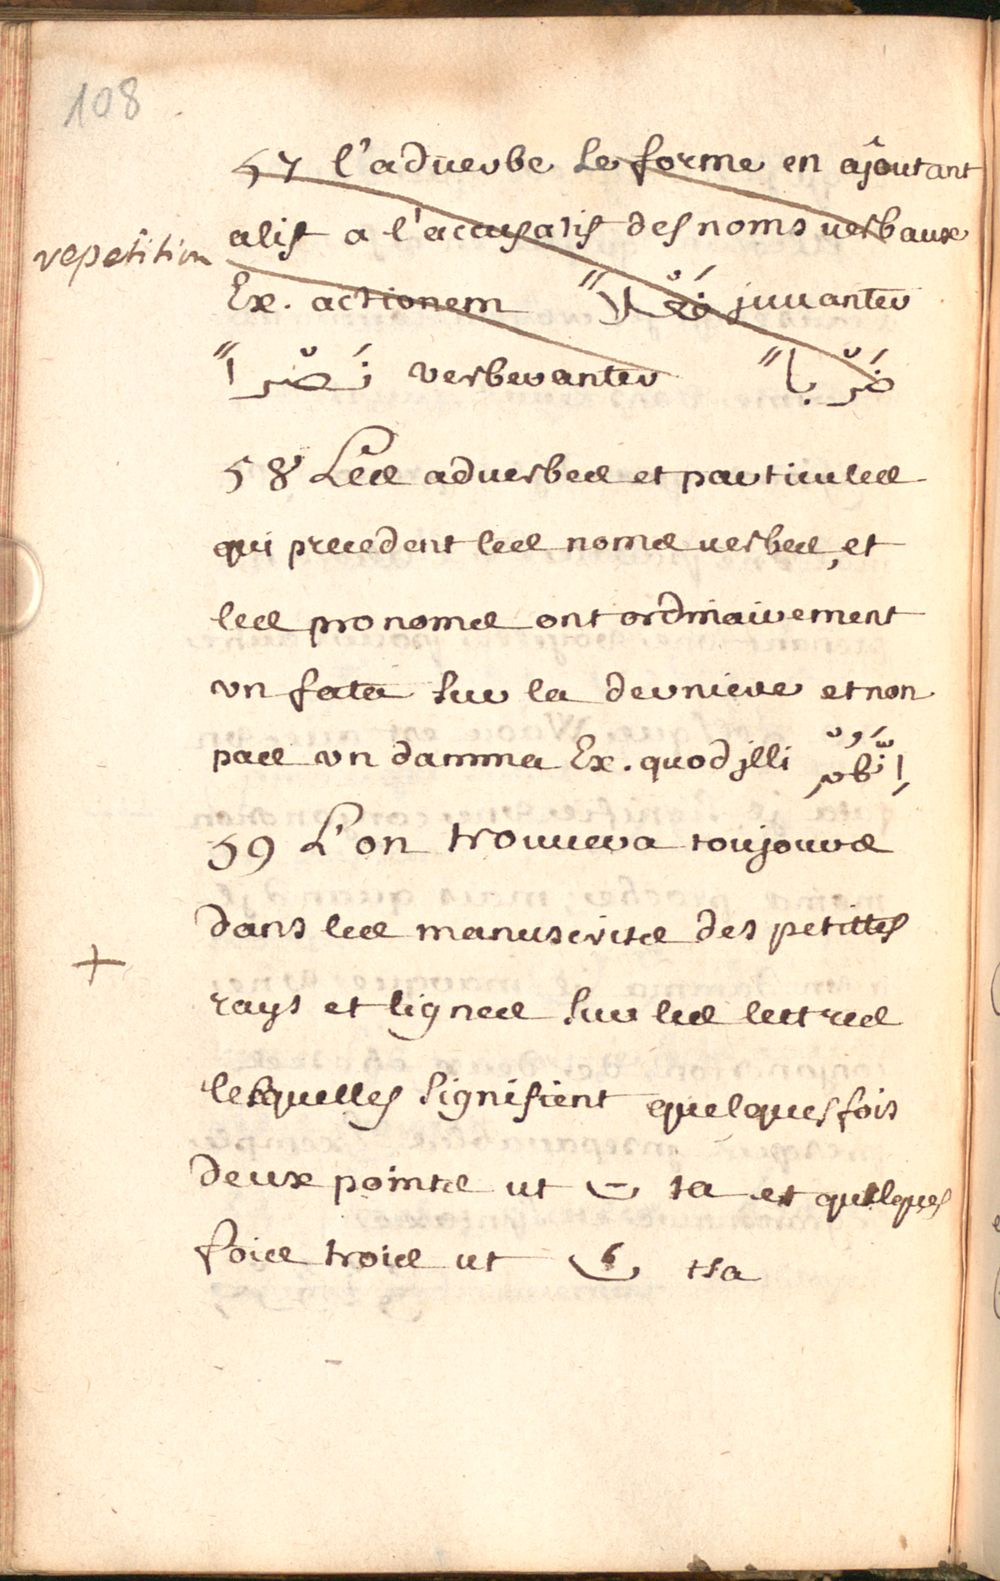 108
57 l'aduerbe se forme en ajoutant
alif a l'accusatif des noms uerbaux
repetition
Ex. actionem فَعْلاً juuanter
نَصْراً verberanter ضَرْباً
58 Les aduerbes et particules
qui precedent les noms uerbes, et
les pronoms ont ordinairement
vn fata sur la derniere et non
pas vn damma Ex. quod illi
59 L'on trouuera toujours
dans les manuscrits des petittes
+
rays et lignes sur les lettres
lesquelles signifient quelquesfois
deux points ut ت ta et quelques
fois trois ut ث tsa